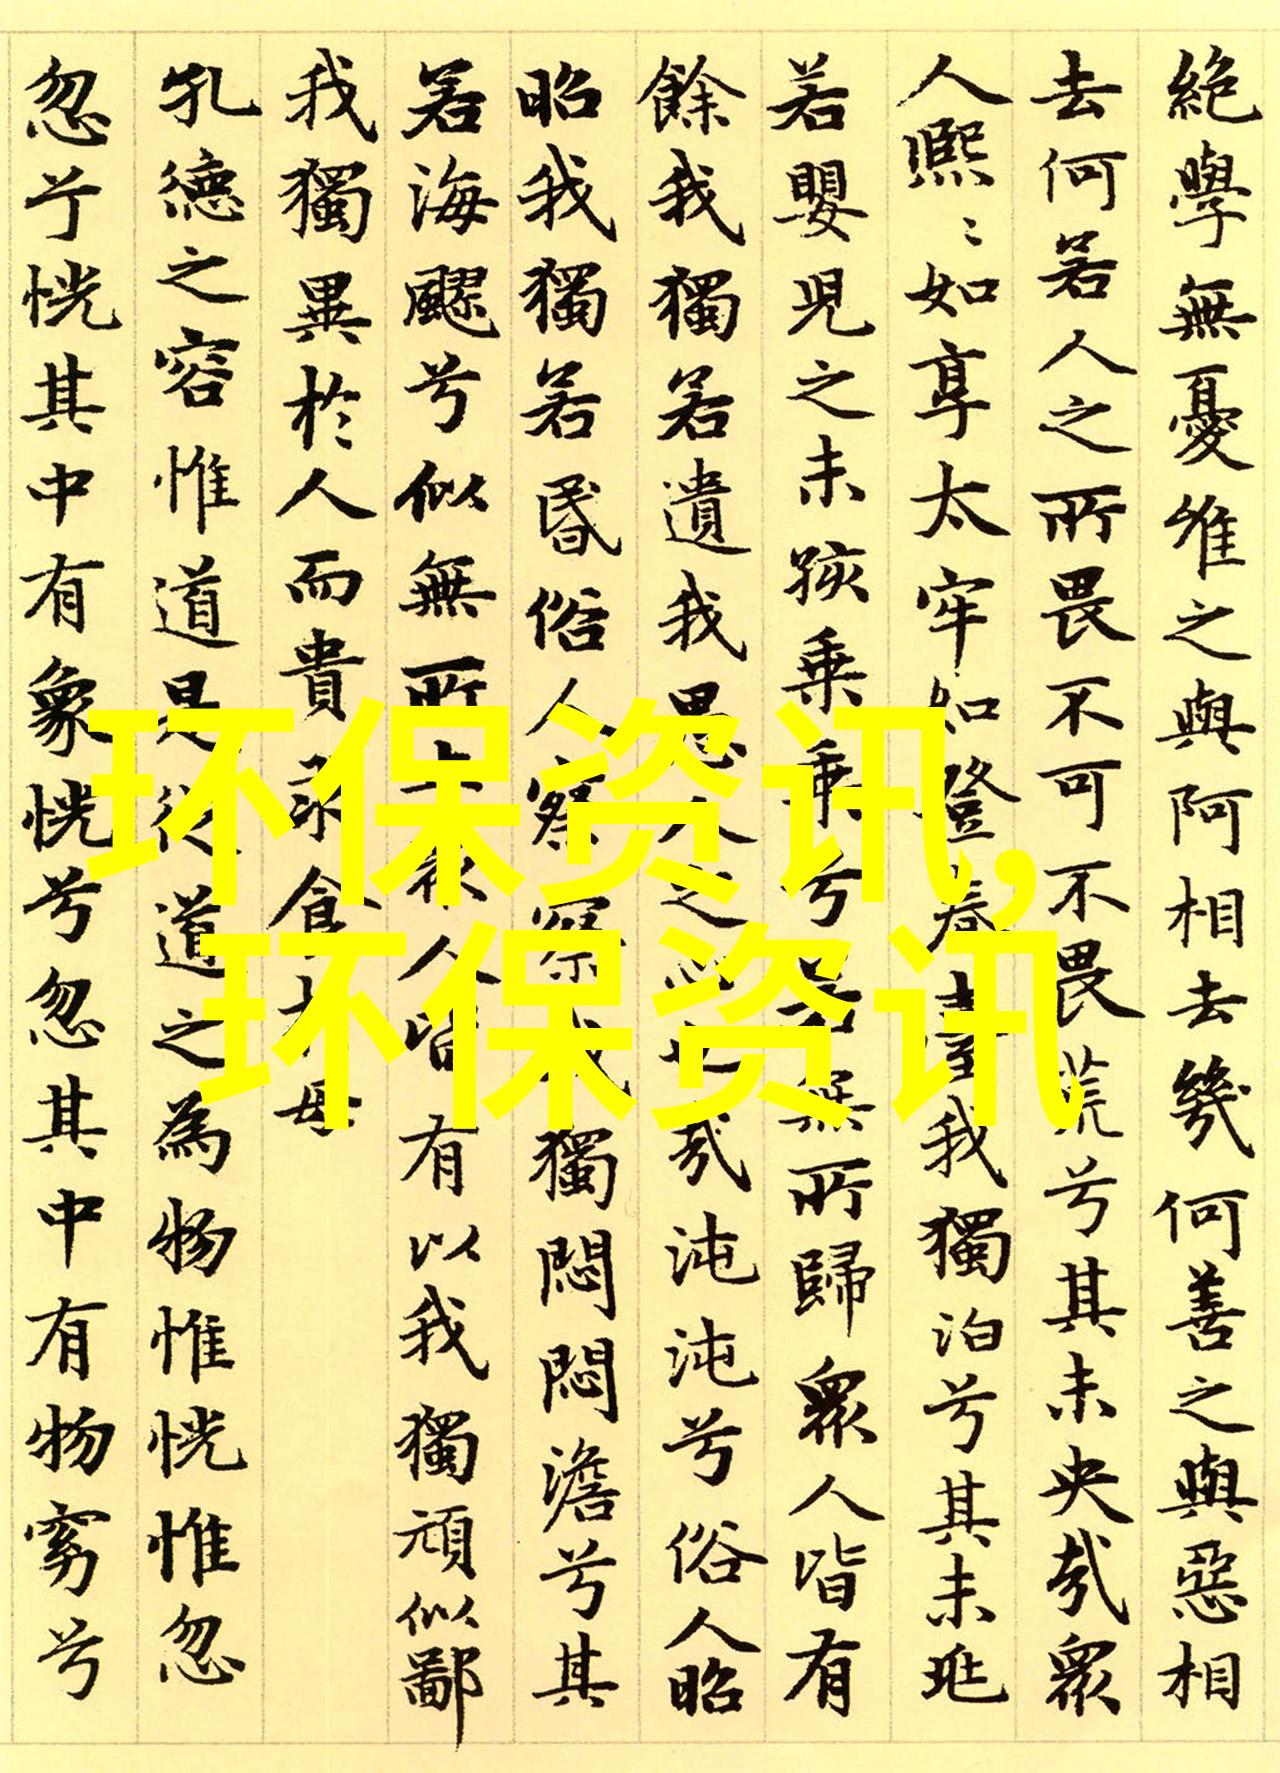 絶學無憂唯之與阿相去幾何善之與惡相
去何若人之所畏不可不畏荒兮其未央哉眾
人熙〻如享太牢如登春臺我獨泊兮其未兆
若嬰兒之未孩乘乘兮若無所歸眾人皆有
餘我獨若遺我愚人之心也哉沌沌兮俗人昭
昭我獨若昬俗人察察我獨悶悶澹兮其
若海飂兮似無所止眾人皆有以我獨頑似鄙
我獨異於人而貴求食於母
孔德之容惟道是從道之為物惟恍惟忽
忽兮恍其中有象恍兮忽其中有物窈兮
环保资讯,
环保资讯